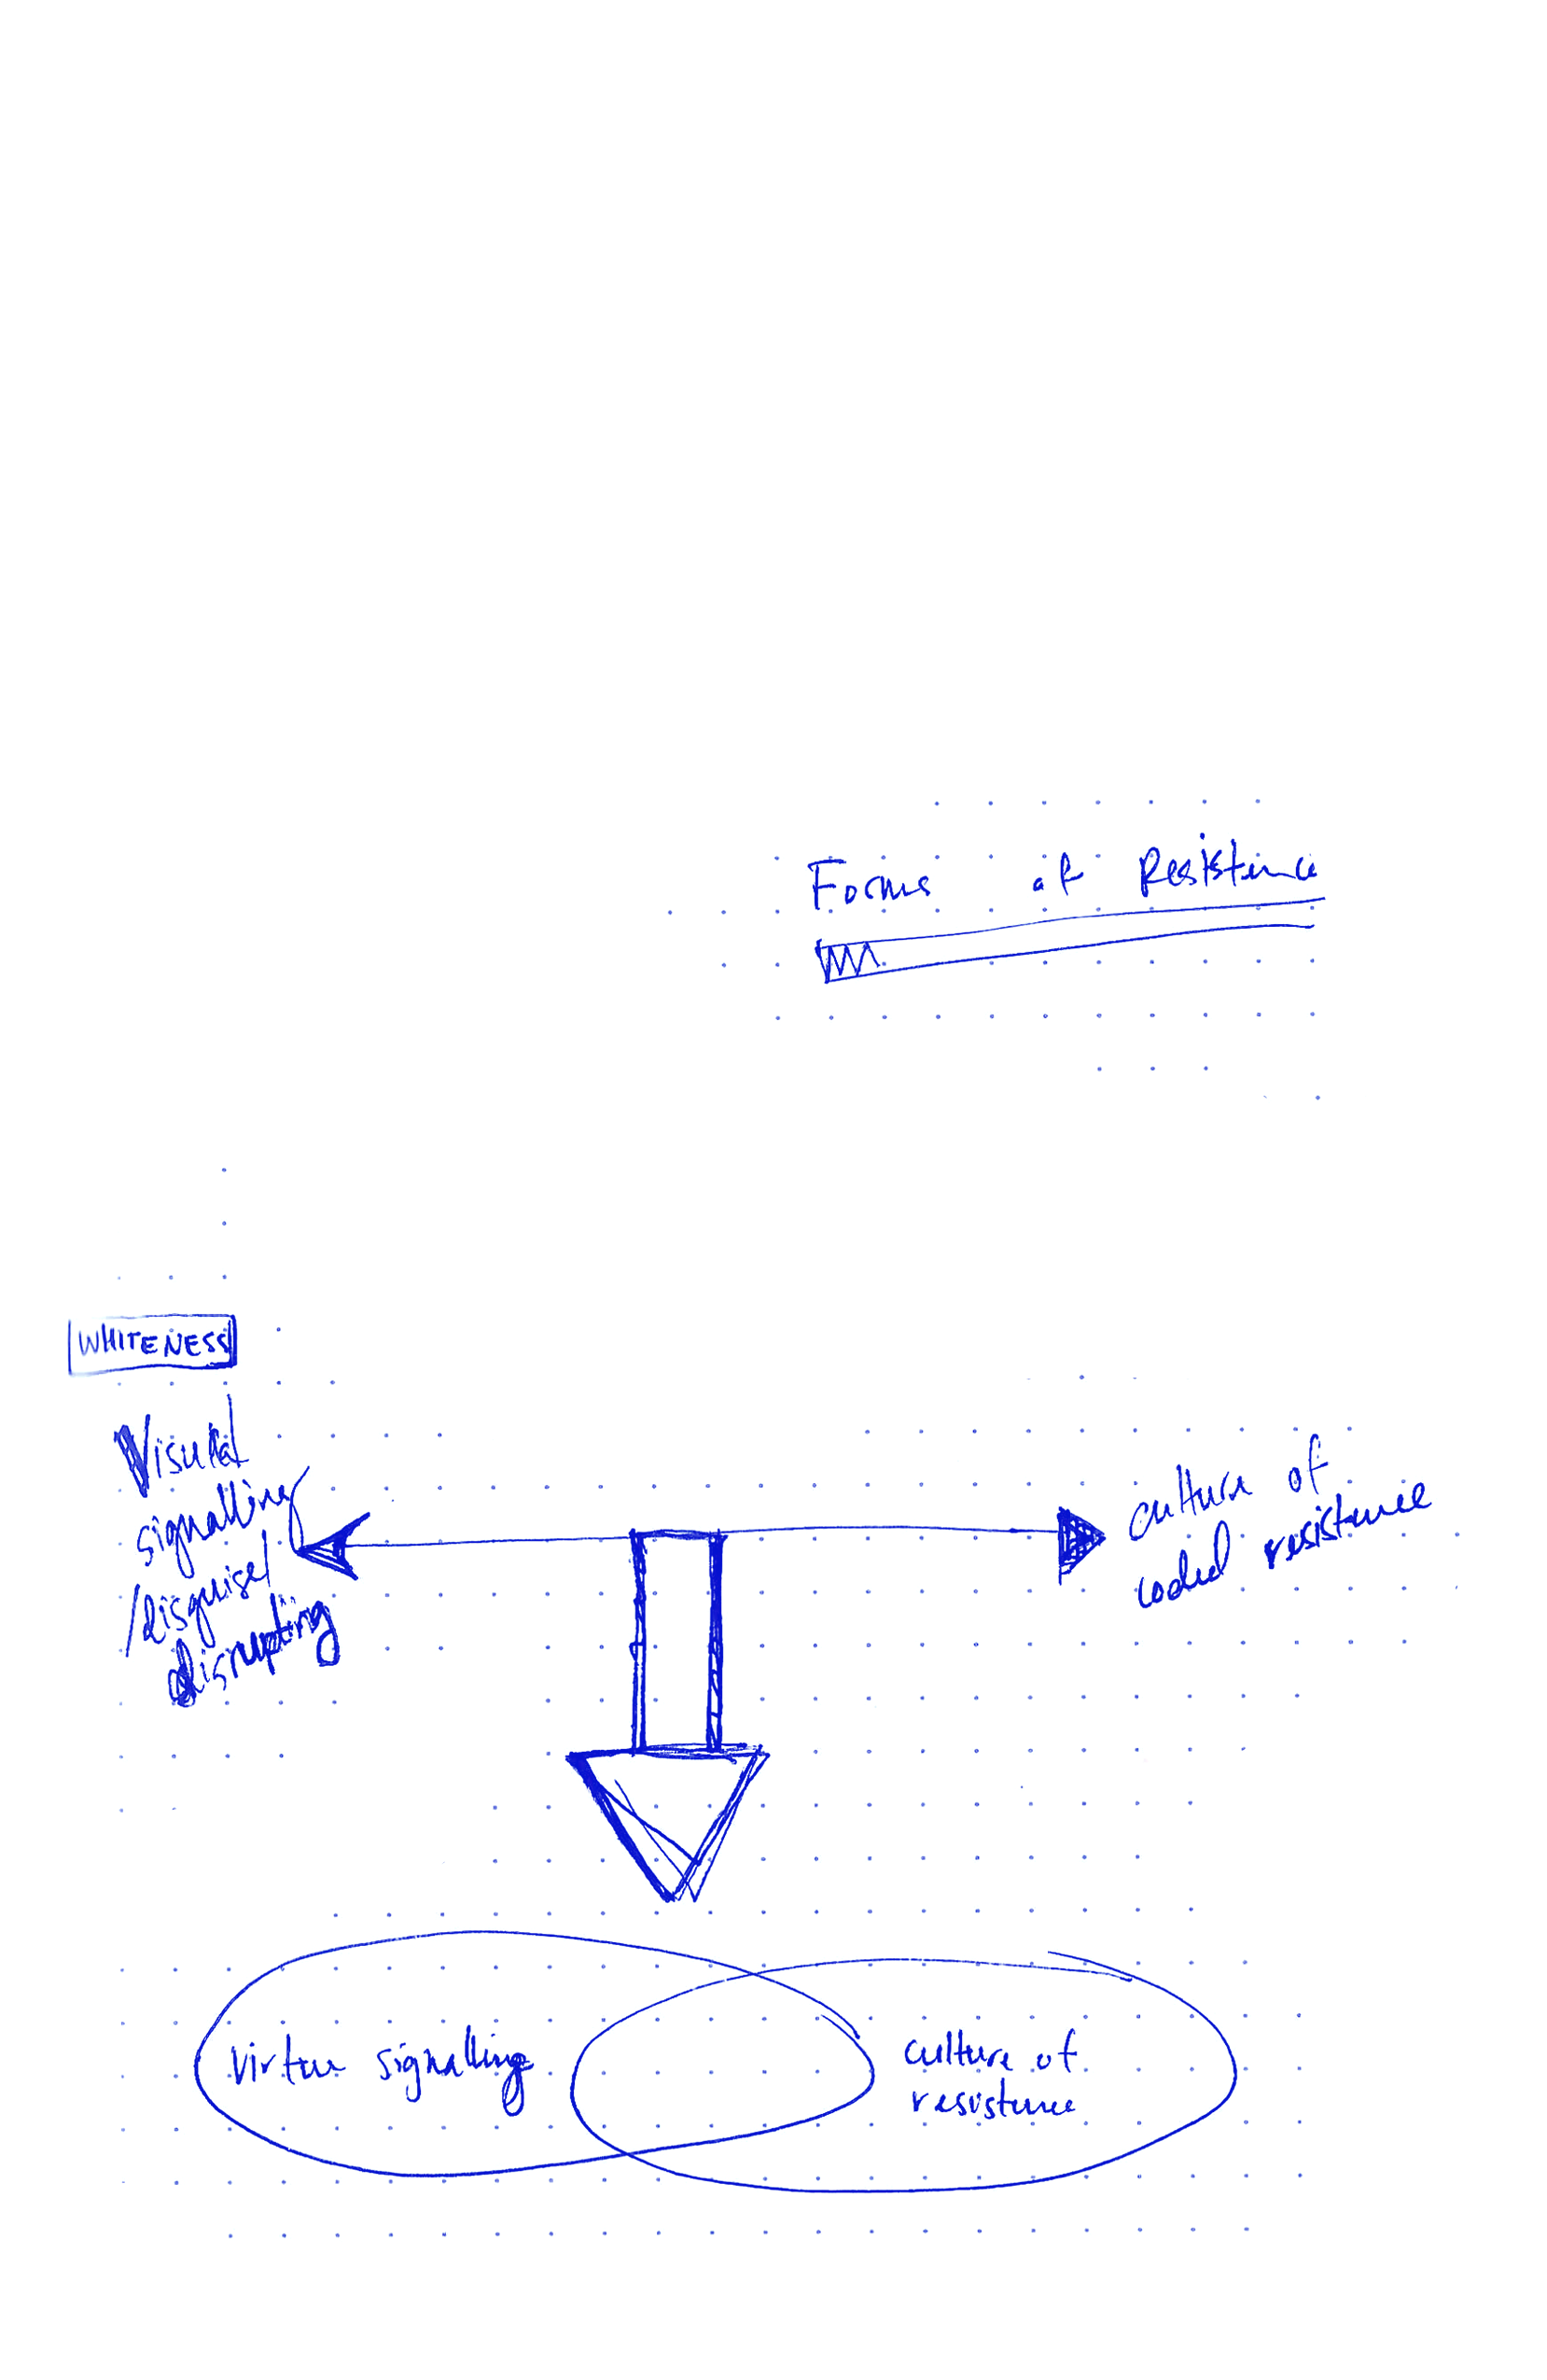 Forms of Resistence
WHITENESS
Visual
signalling
/disguise/
disrupting
culture of
coded resistence
virtue signalling
culture of
resistence